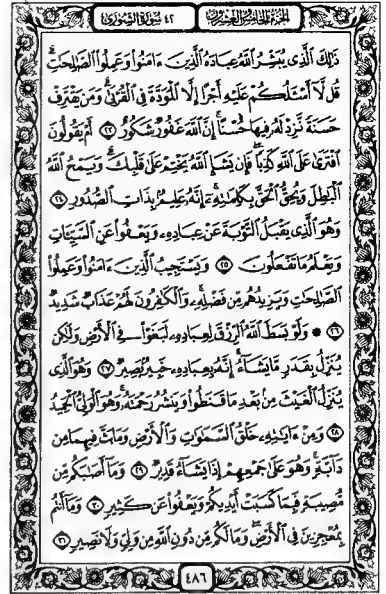 الجزء الخامس والعشرون ٤٢ سورة الشورى
ذَٰلِكَ ٱلَّذِي يُبَشِّرُ ٱللَّهُ عِبَادَهُ ٱلَّذِينَ ءَامَنُوا۟ وَعَمِلُوا۟ ٱلصَّٰلِحَٰتِۗ
قُل لَّآ أَسْـَٔلُكُمْ عَلَيْهِ أَجْرًا إِلَّا ٱلْمَوَدَّةَ فِى ٱلْقُرْبَىٰۗ وَمَن يَقْتَرِفْ
حَسَنَةً نَّزِدْ لَهُۥ فِيهَا حُسْنًاۚ إِنَّ ٱللَّهَ غَفُورٌ شَكُورٌ ٢٣ أَمْ يَقُولُونَ
ٱفْتَرَىٰ عَلَى ٱللَّهِ كَذِبًاۖ فَإِن يَشَإِ ٱللَّهُ يَخْتِمْ عَلَىٰ قَلْبِكَۗ وَيَمْحُ ٱللَّهُ
ٱلْبَٰطِلَ وَيُحِقُّ ٱلْحَقَّ بِكَلِمَٰتِهِۦٓۚ إِنَّهُۥ عَلِيمٌۢ بِذَاتِ ٱلصُّدُورِ ٢٤
وَهُوَ ٱلَّذِى يَقْبَلُ ٱلتَّوْبَةَ عَنْ عِبَادِهِۦ وَيَعْفُوا۟ عَنِ ٱلسَّيِّـَٔاتِ
وَيَعْلَمُ مَا تَفْعَلُونَ ٢٥ وَيَسْتَجِيبُ ٱلَّذِينَ ءَامَنُوا۟ وَعَمِلُوا۟
ٱلصَّٰلِحَٰتِ وَيَزِيدُهُم مِّن فَضْلِهِۦۚ وَٱلْكَٰفِرُونَ لَهُمْ عَذَابٌ شَدِيدٌ
٢٦ ۞ وَلَوْ بَسَطَ ٱللَّهُ ٱلرِّزْقَ لِعِبَادِهِۦ لَبَغَوْا۟ فِى ٱلْأَرْضِ وَلَٰكِن
يُنَزِّلُ بِقَدَرٍ مَّا يَشَآءُۚ إِنَّهُۥ بِعِبَادِهِۦ خَبِيرٌۢ بَصِيرٌ ٢٧ وَهُوَ ٱلَّذِى
يُنَزِّلُ ٱلْغَيْثَ مِنۢ بَعْدِ مَا قَنَطُوا۟ وَيَنشُرُ رَحْمَتَهُۥۚ وَهُوَ ٱلْوَلِىُّ ٱلْحَمِيدُ
٢٨ وَمِنْ ءَايَٰتِهِۦ خَلْقُ ٱلسَّمَٰوَٰتِ وَٱلْأَرْضِ وَمَا بَثَّ فِيهِمَا مِن
دَآبَّةٍۚ وَهُوَ عَلَىٰ جَمْعِهِمْ إِذَا يَشَآءُ قَدِيرٌ ٢٩ وَمَآ أَصَٰبَكُم مِّن
مُّصِيبَةٍ فَبِمَا كَسَبَتْ أَيْدِيكُمْ وَيَعْفُوا۟ عَن كَثِيرٍ ٣٠ وَمَآ أَنتُم
بِمُعْجِزِينَ فِى ٱلْأَرْضِۖ وَمَا لَكُم مِّن دُونِ ٱللَّهِ مِن وَلِىٍّ وَلَا نَصِيرٍ ٣١
٤٨٦